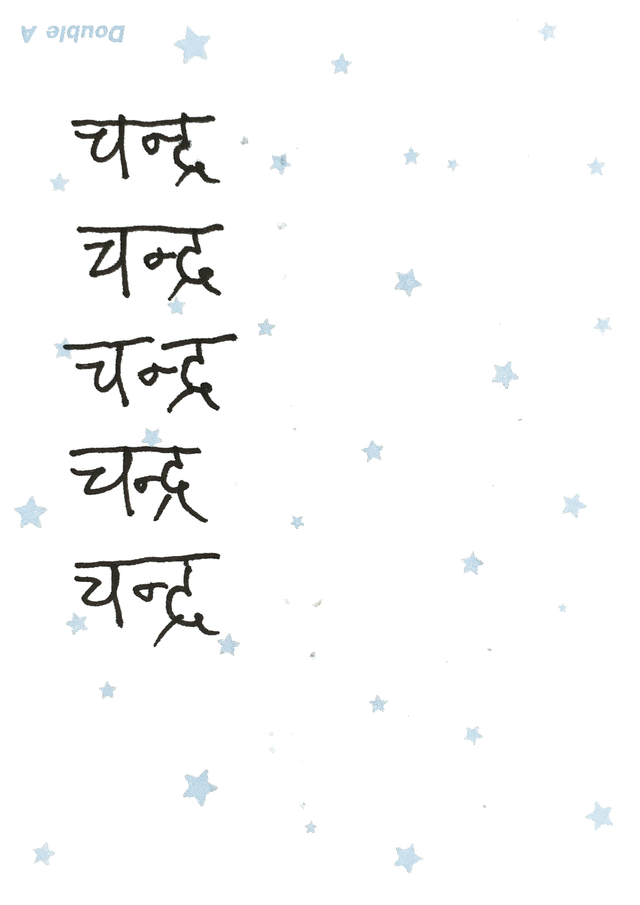 Double A
चन्द्र
चन्द्र
चन्द्र
चन्द्र
चन्द्र